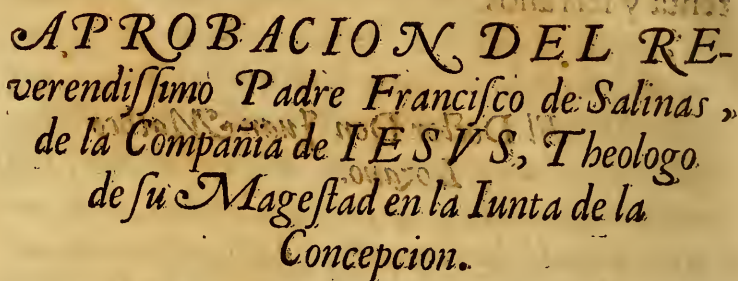 APROBACION DEL RE-
verendiſſimo Padre Franciſco de Salinas,
de la Compañia de IESVS, Theologo
de ſu Mageſtad en la Iunta de la
Concepcion.